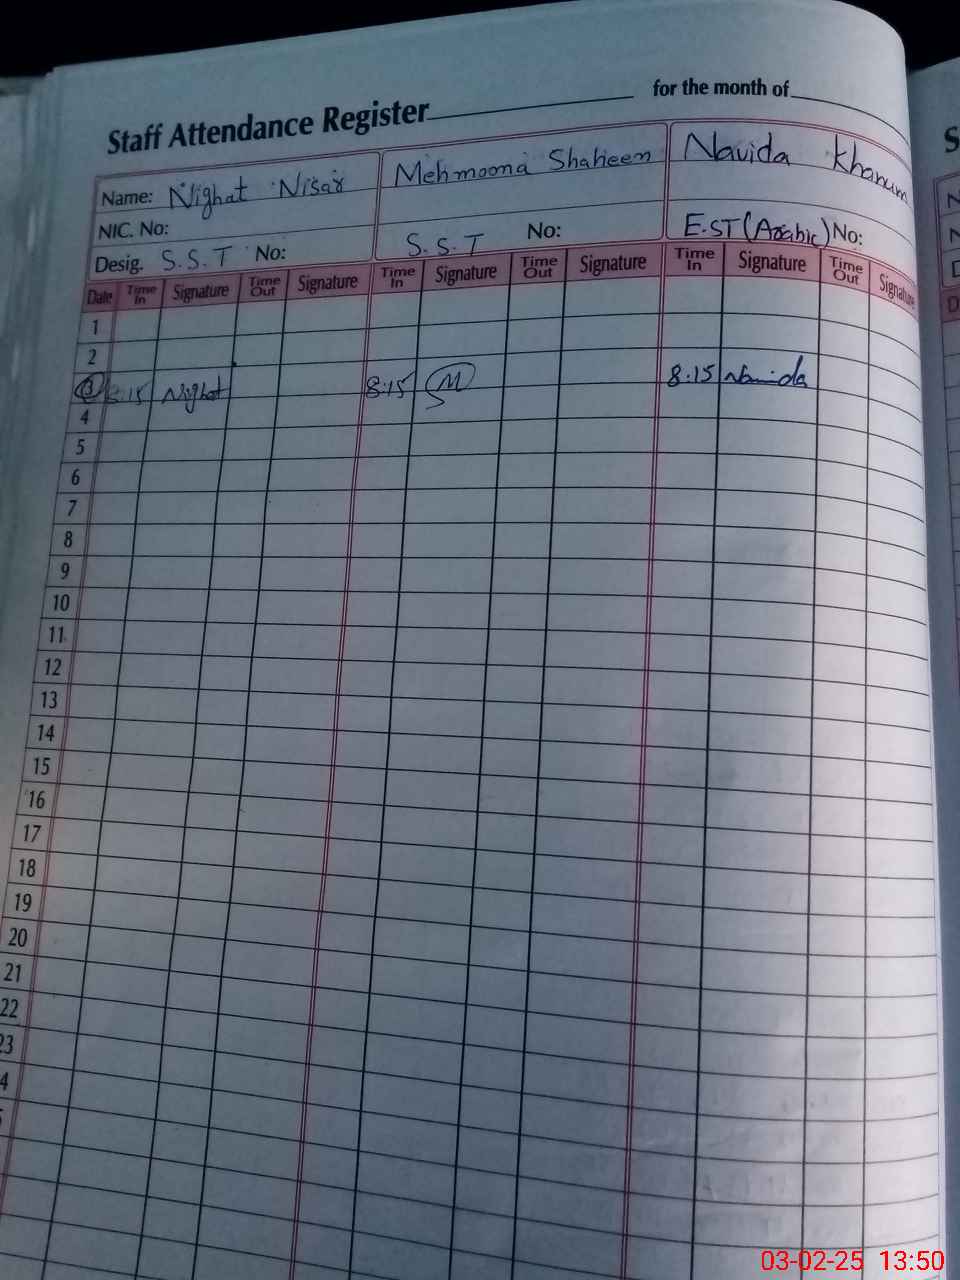 Staff Attendance Register for the month of
Name: Nighat Nisar Mehmoona Shaheen Navida Khanum
NIC. No:
Desig. S.S.T No: S.S.T No: E.ST (Arabic) No:
Date Time In Signature Time Out Signature Time In Signature Time Out Signature Time In Signature Time Out Signature
1
2
3 8:15 Nighat 8:15 M 8:15 Navida
4
5
6
7
8
9
10
11
12
13
14
15
16
17
18
19
20
21
22
23
4
S
N
N
D
D
03-02-25 13:50